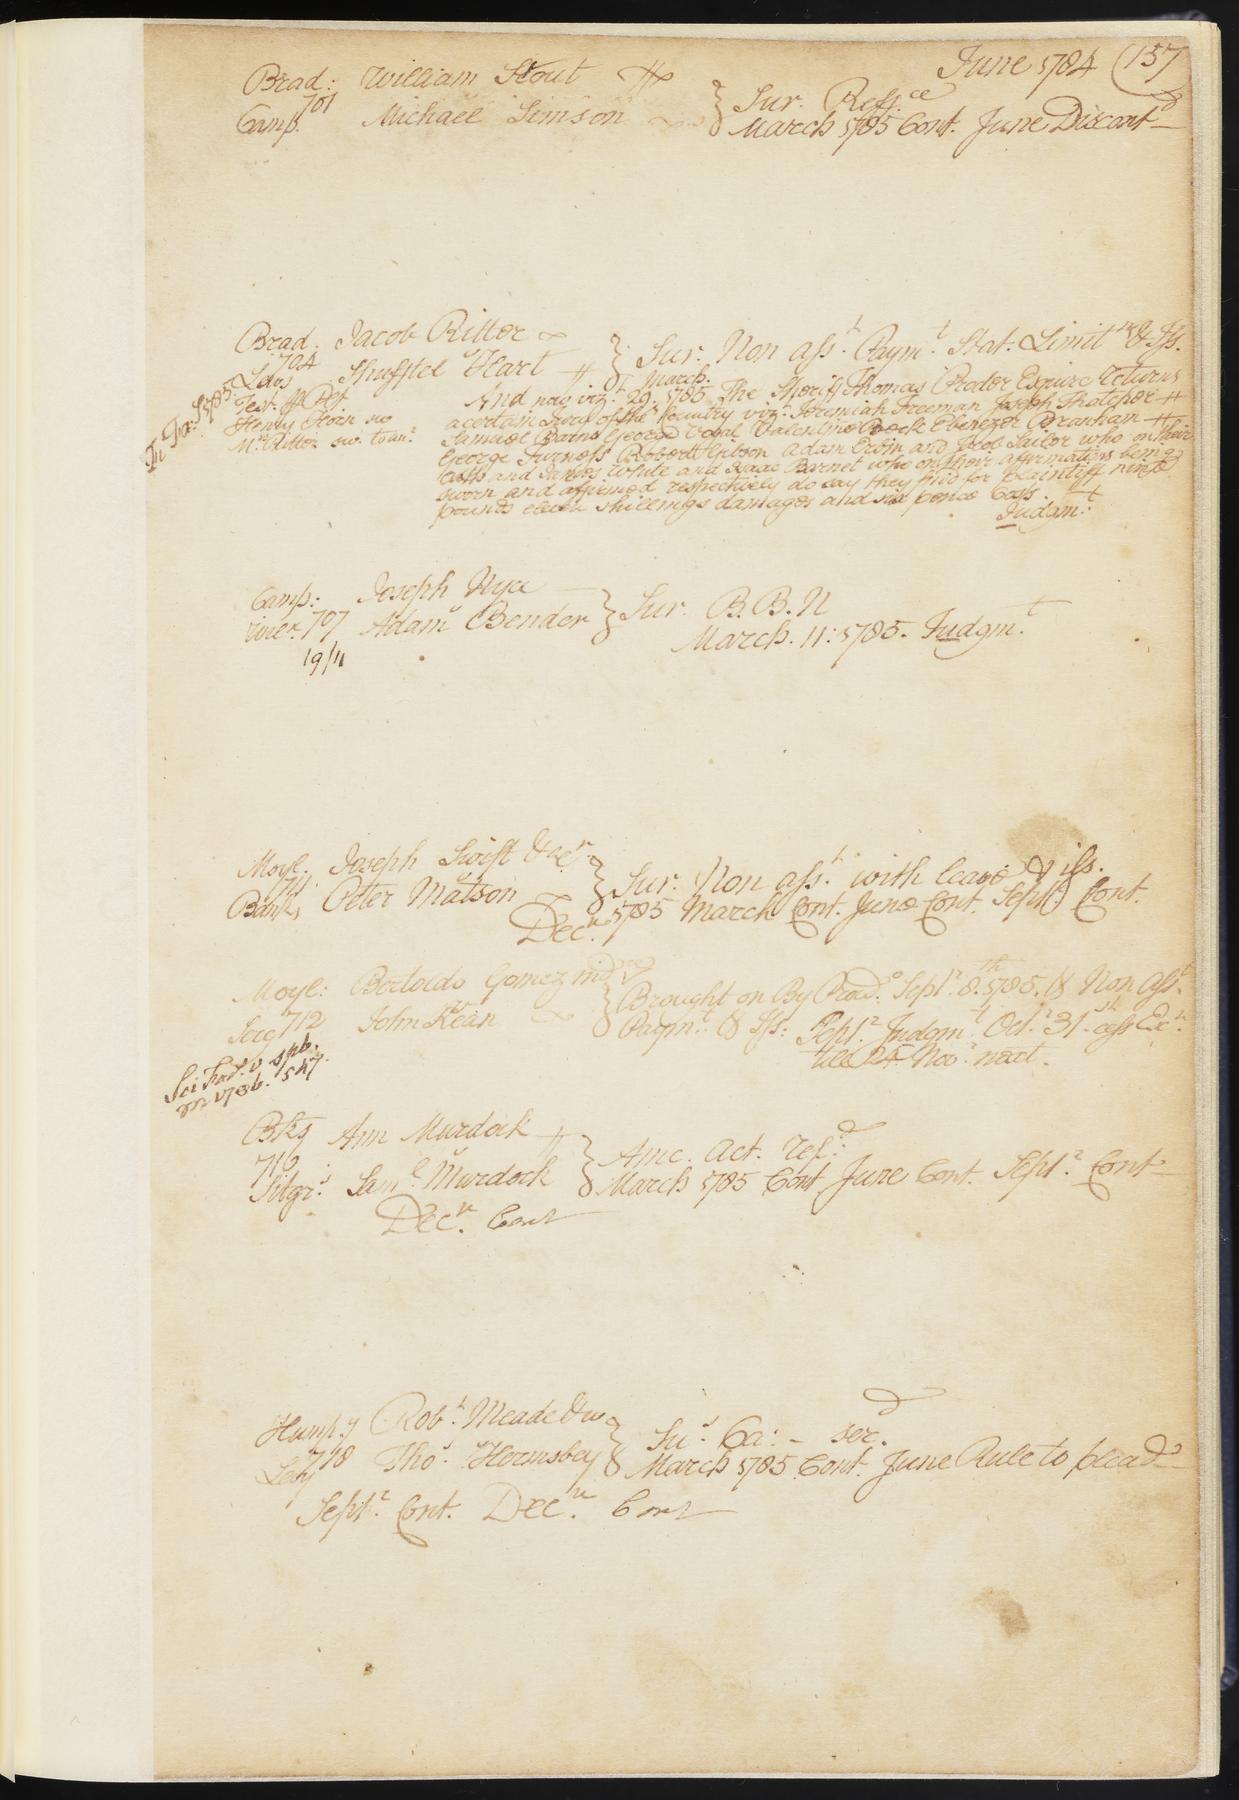 June 1784 (157
Brad: William Stout
701
Camp. Michael Simson } Sur. Reff.ce
March 1785 Cont. June Discont.d
Brad. Jacob Ritter
704
Shufftel Hart } Sur. Non ass.t Paym.t Stat. Limit.n & Iss.
March.
And now viz.t 29. 1785 The Sheriff Thomas Proctor Esquire Returns
a certain Jury of the Country viz.t Jeremiah Freeman Joseph Thatcher
Samuel Barns George Vogal Valentine Bock Ebenezer Branham
George Furness Robert Gibson Adam Ervin and Jacob Sailor who on their
oaths and James White and Isaac Barnet who on their affirmations being
sworn and affirmed respectively do say they find for plaintiff nine
pounds eleven shillings damages and six pence Cost.
Judgm.t
Camp: Joseph Nye
707 Adam Bender } Sur. B. B. N
March. 11: 1785. Judgm.t
19/11
Moyl. Joseph Swift &
711
Bank, Peter Matson } Sur. Non ass.t with leave & iss.
Dec.r 1785 March Cont. June Cont. Sept.r Cont.
Moyl: Gomez
712 John Kean } Brought on By Sept.r 8.th 1785. & Non ass.t
Paym.t & Iss: Sept.r Judgm.t Oct.r 31.st
till 24 Nov.r next.
Bks Ann Murdock
716
Sitgr.s Sam.l Murdock } Amc. Act. Ref.d
March 1785 Cont June Cont. Sept.r Cont
Dec.r Cont
Hump.y Rob.t Meade &
718 Tho.s Hormsbey } Su.r Ca: - ser.d
March 1785 Cont. June Rule to plead
Sept.r Cont. Dec.r Cont